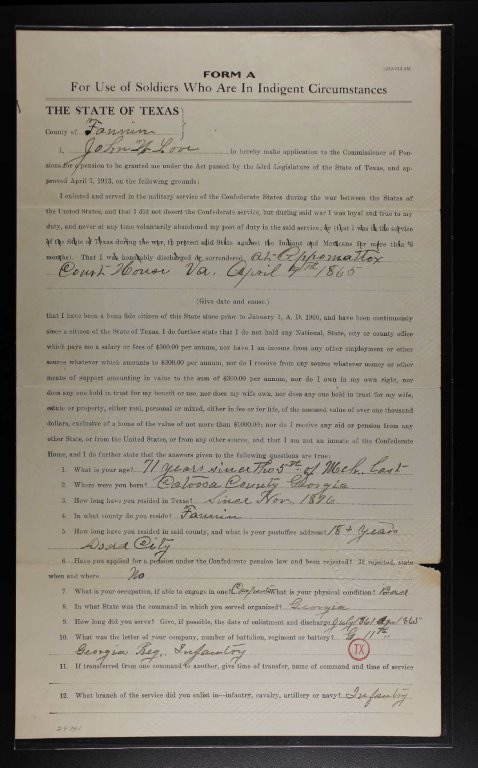 FORM A
For Use of Soldiers Who Are In Indigent Circumstances
THE STATE OF TEXAS
County of Fannin
I, John W Love to hereby make application to the Commissioner of Pen-
sions for a pension to be granted me under the Act passed by the 33rd Legislature of the State of Texas, and ap-
proved April 7, 1913, on the following grounds:
I enlisted and served in the military service of the Confederate States during the war between the States of
the United States, and that I did not desert the Confederate service, but during said war I was loyal and true to my
duty, and never at any time voluntarily abandoned my post of duty in the said service; or (that I was in the service
of the State of Texas during the war, to protect said State against the Indians and Mexicans for more than 6
months). That I was honorably discharged or surrendered at Appomattox
Court House Va. April 9th 1865
(Give date and cause.)
that I have been a bona fide citizen of this State since prior to January 1, A. D. 1900, and have been continuously
since a citizen of the State of Texas. I do further state that I do not hold any National, State, city or county office
which pays me a salary or fees of $300.00 per annum, nor have I an income from any other employment or other
source whatever which amounts to $300.00 per annum, nor do I receive from any source whatever money or other
means of support amounting in value to the sum of $300.00 per annum, nor do I own in my own right, nor
does any one hold in trust for my benefit or use, nor does my wife own, nor does any one hold in trust for my wife,
estate or property, either real, personal or mixed, either in fee or for life, of the assessed value of over one thousand
dollars, exclusive of a home of the value of not more than $1000.00; nor do I receive any aid or pension from any
other State, or from the United States, or from any other source, and that I am not an inmate of the Confederate
Home, and I do further state that the answers given to the following questions are true:
1. What is your age? 71 years since the 5th of Mch. last
2. Where were you born? Catoosa County Georgia
3. How long have you resided in Texas? Since Nov. 1886
4. In what county do you reside? Fannin
5. How long have you resided in said county, and what is your postoffice address? 18 + years
Dodd City
6. Have you applied for a pension under the Confederate pension law and been rejected? If rejected, state
when and where No
7. What is your occupation, if able to engage in one? Carpenter What is your physical condition? Bad
8. In what State was the command in which you served organized? Georgia
9. How long did you serve? Give, if possible, the date of enlistment and discharge. July 1861 Apr 1865
10. What was the letter of your company, number of battalion, regiment or battery? G 11th
Georgia Reg. Infantry
TX
11. If transferred from one command to another, give time of transfer, name of command and time of service
12. What branch of the service did you enlist in—infantry, cavalry, artillery or navy? Infantry